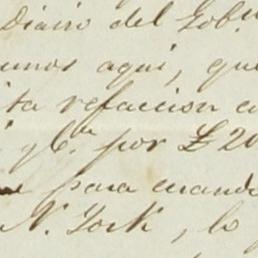 Diario del Gob.no
unos aqui, que
ita refaccion co
y C.a por £ 20
para cuando
N. York, lo